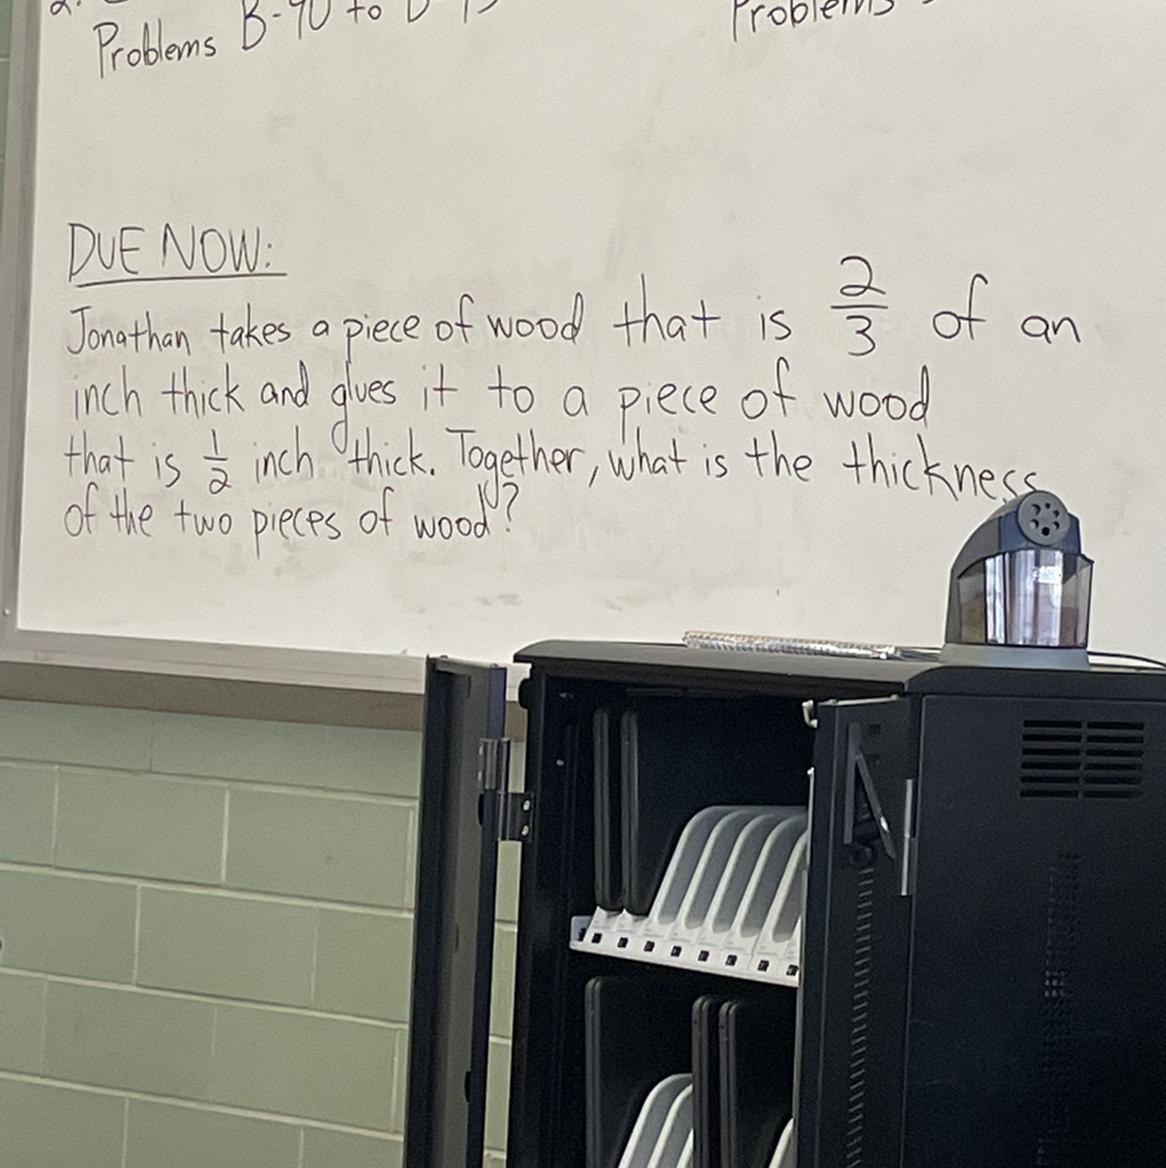 2.
Problems B-90 to Problems
DUE NOW:
Jonathan takes a piece of wood that is 2/3 of an
inch thick and glues it to a piece of wood
that is 1/2 inch thick. Together, what is the thickness
of the two pieces of wood?